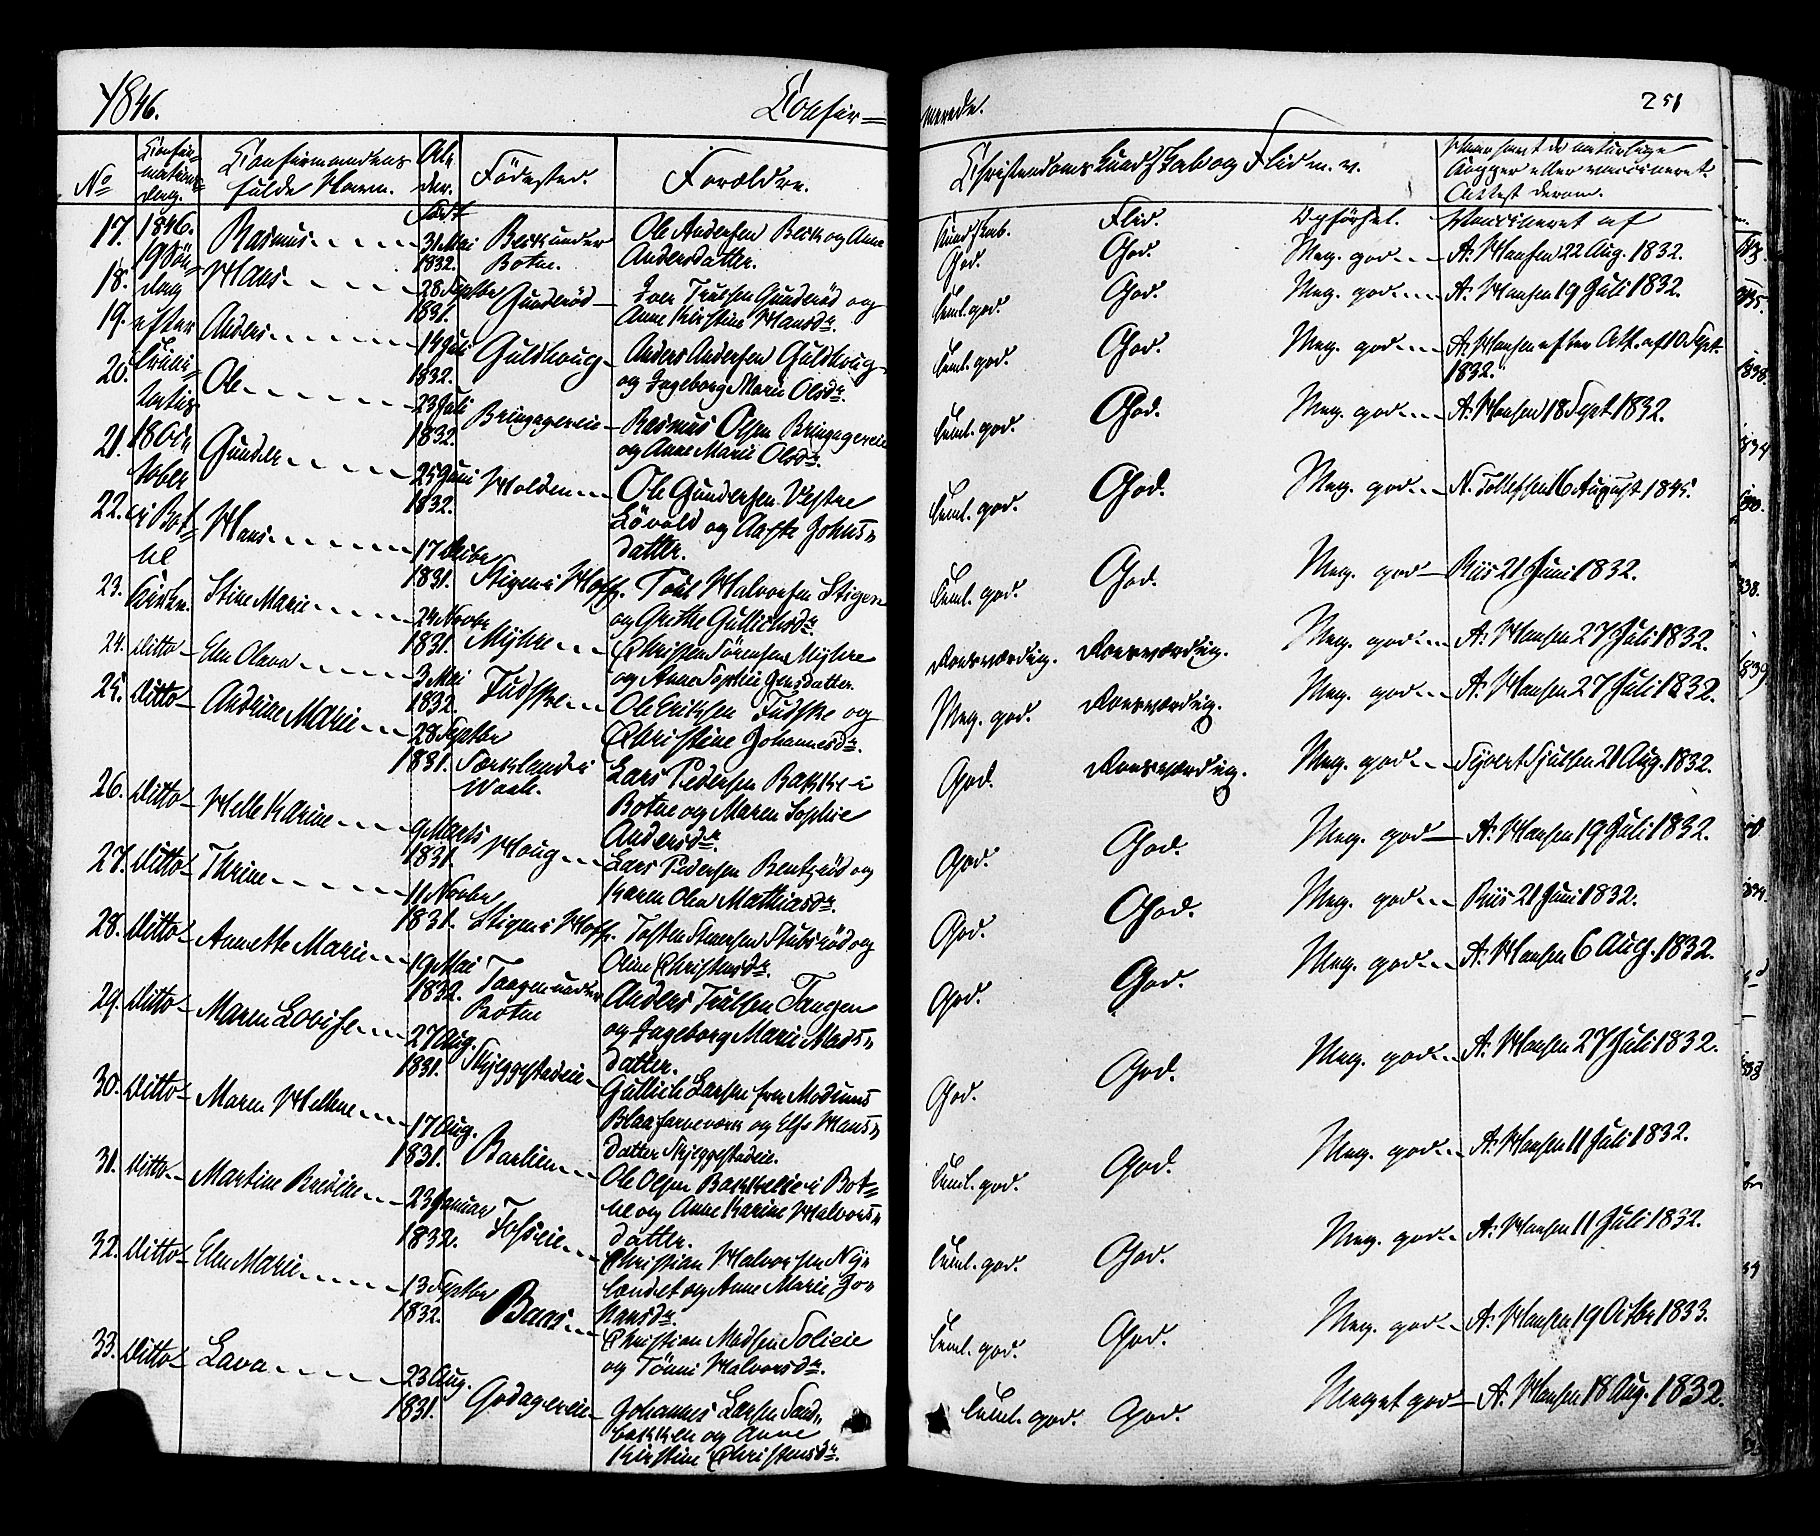 1846.
Confir=
merede.
251
No
Confir=
mations
dag.
Confirmandens
fulde Navn.
Al=
der.
Fødested.
Forældre.
Christendoms Kundskab og Flid m. v.
Hvar havt de naturlige
Kopper eller vaccineret.
Attest derom.
17. 1846. Rasmus Født 31 Mai 1832. Berk under Botne. Ole Andersen Berk og Anne
Andersdatter. Kundskab. God. Flid. God. Opførsel. Meg. god Vaccineret af A. Hansen 22 Aug. 1832.
19 Søn=
dag
efter
Trini=
tatis
18 Oc=
tober
i Bot=
ne
Kirke.
18. Hans 28 Septbr 1831. Gunderød Iver Trulsen Gunderød og
Anne Kirstine Hansdr. Teml. god. God. Meg. god A. Hansen 19 Juli 1832.
19. Anders 14 Juli 1832. Guldhoug Anders Andersen Guldhoug
og Ingeborg Marie Olsdr. Teml. god. God. Meg. god A. Hansen efter Att. af 10 Sept.
1832.
20. Ole 23 Juli 1832. Bringagereie Rasmus Olsen Bringagereie
og Anne Marie Olsdr. Teml. god. God. Meg. god A. Hansen 18 Sept 1832.
21. Gunder 25 Juni 1832. Holden Ole Gundersen Vestre
Løvold og Aaste Johns=
datter. Teml. god. God. Meg. god N. Tollefsen 16 August 1845.
22. Hans 17 Decbr 1831. Stigen i Hoff. Poul Halvorsen Stigen
og Grethe Gullichsdr. Teml. god. God. Meg. god Riis 21 Juni 1832.
23. Stine Marie 24 Novbr 1831. Myhre Christen Sørensen Myhre
og Anne Sophie Jensdatter. Roesværdig. Roesværdig. Meg. god A. Hansen 27 Juli 1832.
24. Ditto Elen Olava 3 Mai 1832. Fudske Ole Eriksen Fudske og
Christine Johannesdr. Meg. god. Roesværdig. Meg. god A. Hansen 27 Juli 1832.
25. Ditto Andrine Marie 28 Septbr 1831. i
Waale. Lars Pedersen Bakke i
Botne og Maren Sophie
Andersdr. God. Roesværdig. Meg. god Sjulsen 21 Aug. 1832.
26. Ditto Helle Karine 9 Marts 1831. Houg Lars Pedersen Bentsrød og
Karen Olea Mathiasdr. God. God. Meg. god A. Hansen 19 Juli 1832.
27. Ditto Thrine 11 Novbr 1831. Stigen i Hoff. Tosten Steensen Stubsrød og
Oline Christensdr. God. God. Meg. god Riis 21 Juni 1832.
28. Ditto Annette Marie 19 Mai 1832. Tangen under
Botne Anders Trulsen Tangen
og Ingeborg Marie Mads=
datter. God. God. Meg. god A. Hansen 6 Aug. 1832.
29. Ditto Maren Lovise 27 Aug. 1831. Skjeggestadeie Gullich Larsen fra Modums
Blaafarveværk og Else Hans=
datter Skjeggestadeie. God. God. Meg. god A. Hansen 27 Juli 1832.
30. Ditto Maren Helene 17 Aug. 1831. Barlien Ole Olsen Bakkeeie i Bot=
ne og Anne Karine Halvors=
datter. Teml. god. God. Meg. god A. Hansen 11 Juli 1832.
31. Ditto Martine Bredine 23 Januar 1832. Fosseie Christian Halvorsen Ny=
landet og Anne Marie Jo=
hansdr. Teml. god. God. Meg. god A. Hansen 11 Juli 1832.
32. Ditto Elen Marie 13 Septbr 1832. Baas Christian Madsen Solieie
og Tønni Halvorsdr. Teml. god. God. Meg. god A. Hansen 19 Octbr 1833.
33. Ditto Lava 23 Aug. 1831. Godagereie Johannes Larsen Sand=
bakken og Anne
Kirstine Christensdr. Teml. god. God. Meget god A. Hansen 18 Aug. 1832.